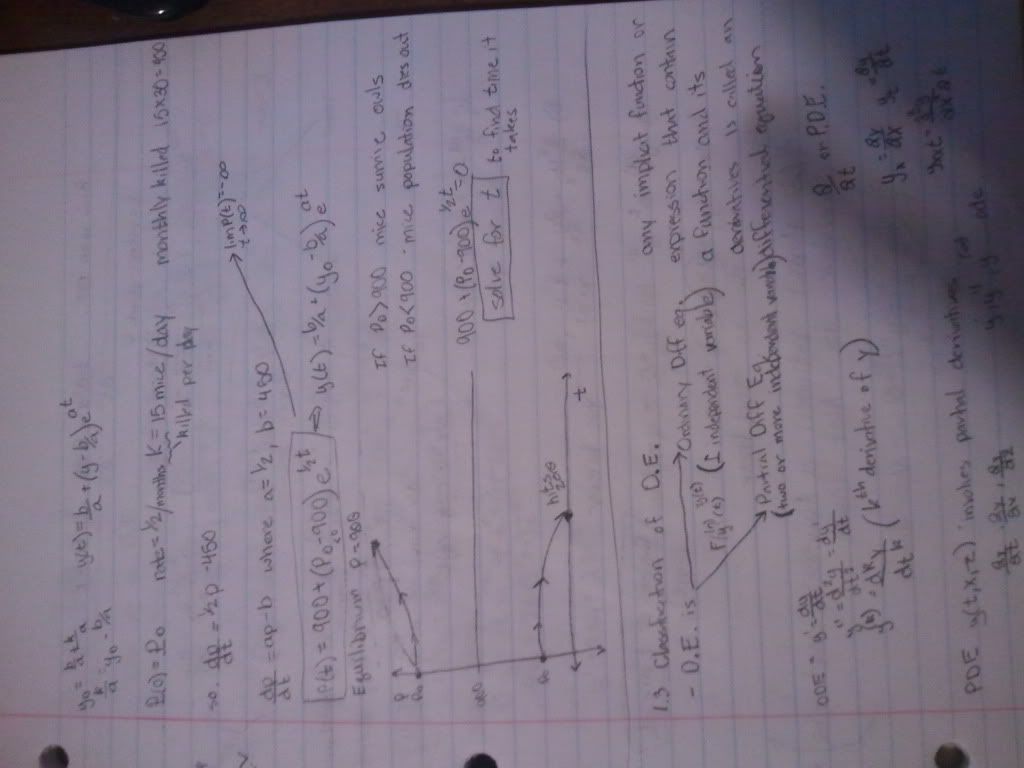 y₀ = b/a + k y(t) = b/a + (y₀ - b/a)e^at
k/a = y₀ - b/a
P(0) = P₀ rate = 1/2/months k = 15 mice/day monthly killed 15x30 = 450
killed per day
so dp/dt = 1/2p - 450
dp/dt = ap - b where a = 1/2, b = 450
lim P(t) = -∞
t→∞
P(t) = 900 + (P₀ - 900)e^1/2t ⇒ y(t) = b/a + (y₀ - b/a)e^at
Equilibrium P = 900
If P₀ > 900 mice survive owls
If P₀ < 900 - mice population dies out
P
P₀
900
P₀
t
900 + (P₀ - 900)e^1/2t = 0
solve for t to find time it takes
1.3 Classification of D.E.
- D.E. is
Ordinary Diff Eq.
(1 independent variable)
Partial Diff Eq
(two or more independent variables)
any implicit function or
expression that contain
a function and its
derivatives is called an
differential equation
ODE - y' = dy/dt
y'' = d²y/dt² = dy'/dt
y^(k) = d^k y/dt^k (kth derivative of y)
∂/∂t or P.D.E.
PDE y(t,x,z) involves partial derivatives, not y, y', y'' ode
∂y/∂t, ∂y/∂x, ∂y/∂z
y_x = ∂y/∂x y_t = ∂y/∂t